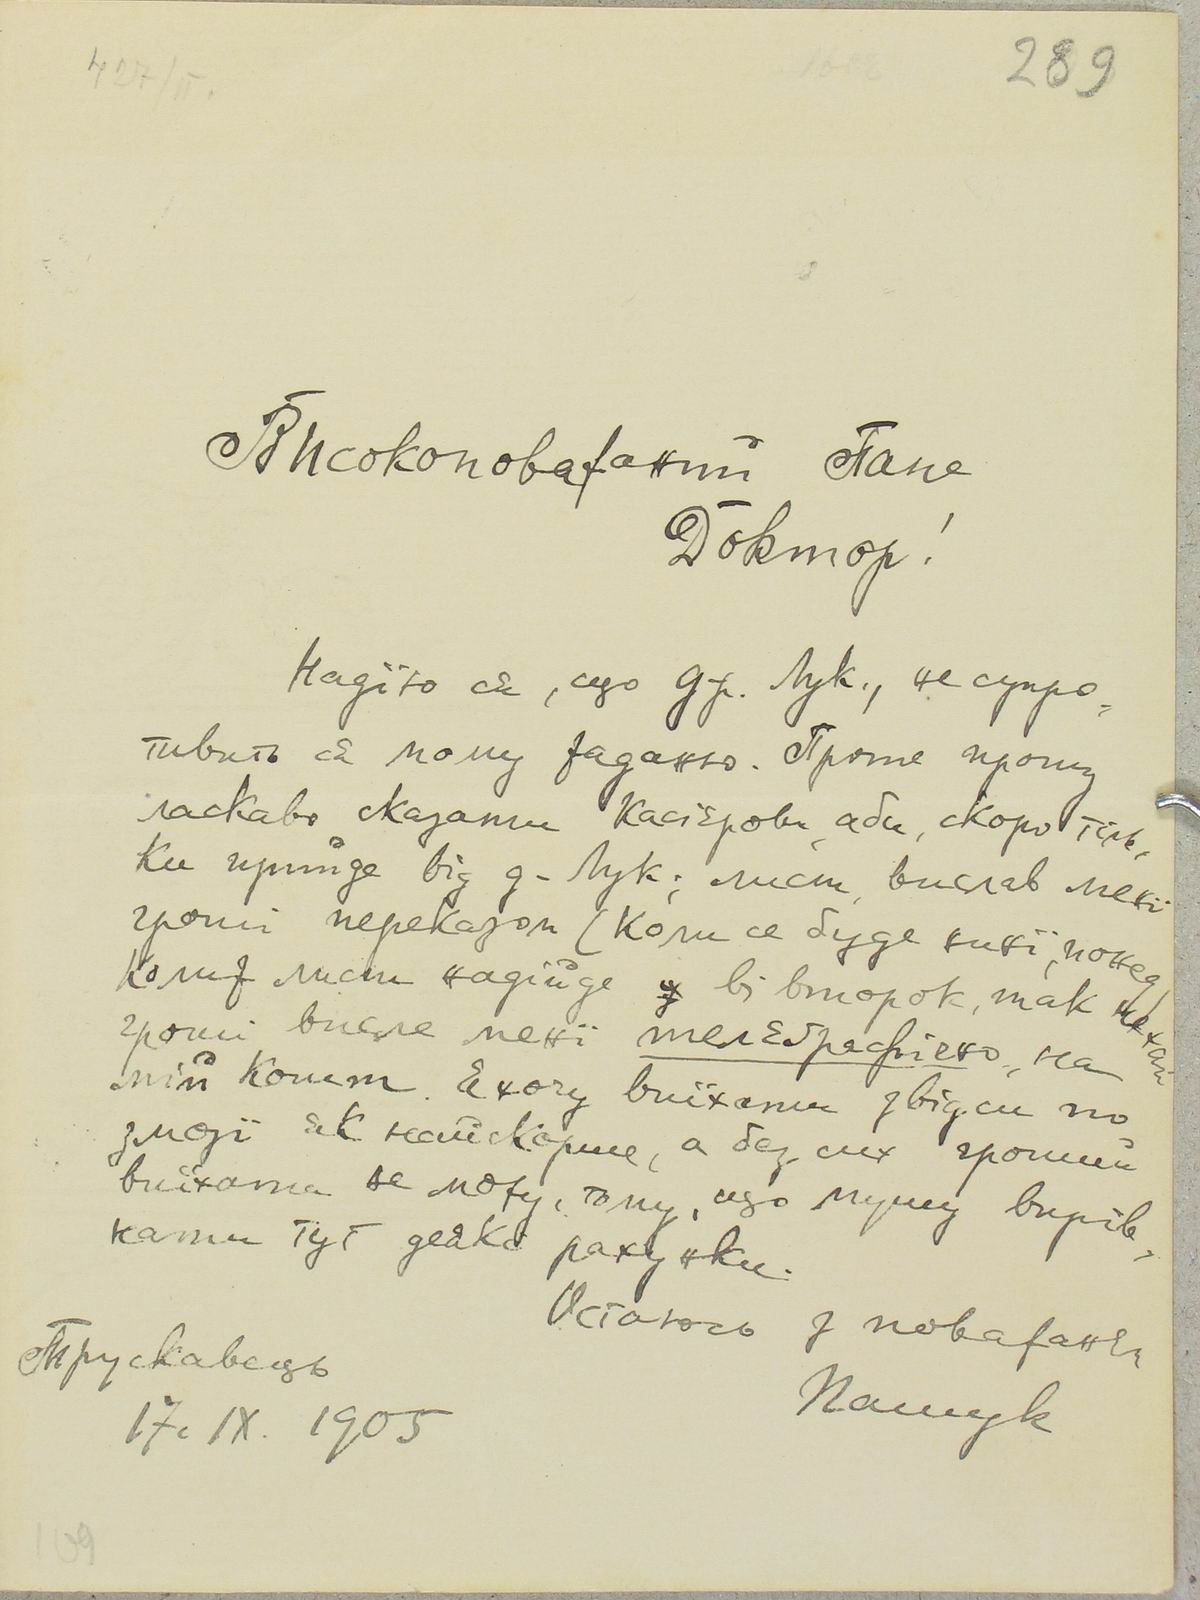 427/II.
289
Високоповажаний Пане
Доктор!
Надїю ся, що др. Лук., не супро-
тивить ся мому жаданю. Проте прошу
ласкаво сказати касієрови, аби, скоро тіль-
ки прийде від д-Лук; лист, вислав менї
гроші переказом (коли се буде нинї, понед.)
колиж лист надійде в вівторок, так нехай
гроші вишле менї телєґрафічно, на
мій кошт. Я хочу виїхати звідси по
змозї як найскорше, а без сих грошей
виїхати не можу, тому, що мушу вирів-
нати тут деякі рахунки.
Остаюсь з поважанєм
Пашук
Трускавець
17. IX. 1905
109